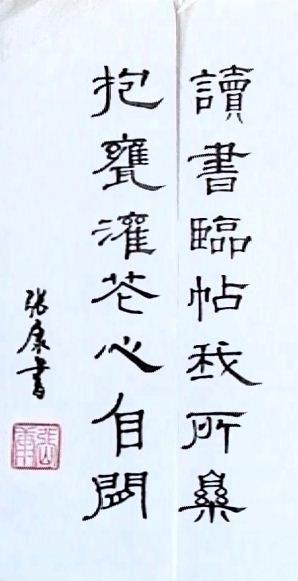 讀書臨帖我所樂
抱甕灌花心自閒
張康書